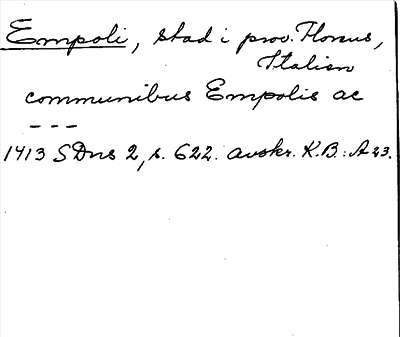 Empoli, stad i prov. Florens,
Italien
communibus Empolis ac
- - -
1413 SDns 2, s. 622. avskr. K.B.: A 23.